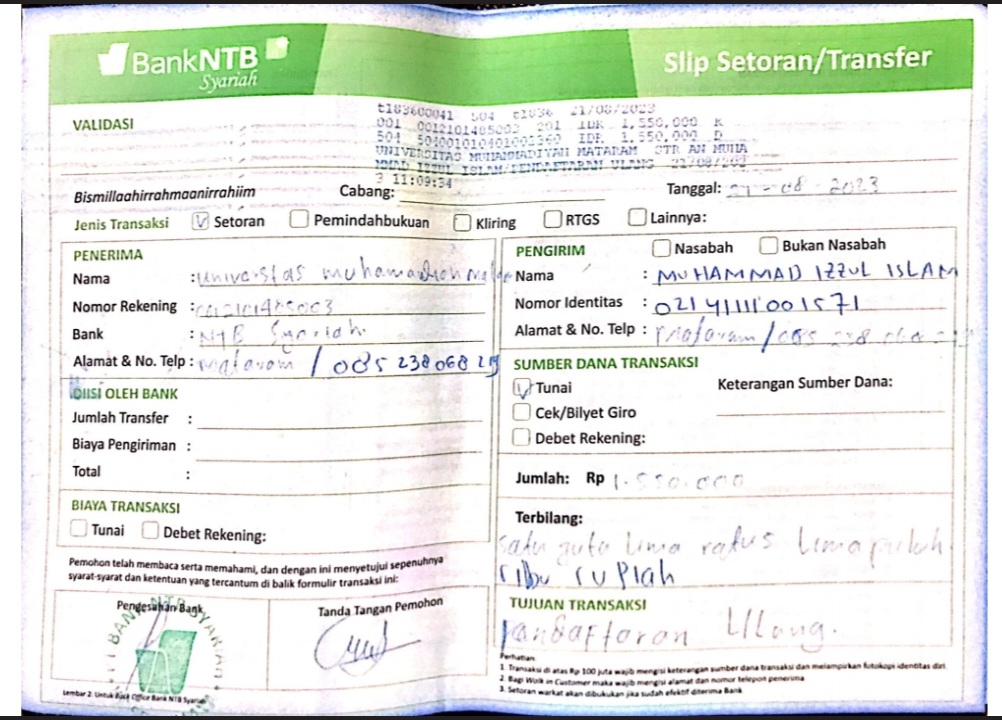 BankNTB
Syariah
Slip Setoran/Transfer
VALIDASI
t183600041 504 t1836 21/08/2023
001 0012101485003 201 IDR 1,550,000 K
504 IDR 1,550,000 D
UNIVERSITAS MUHAMMADIYAH MATARAM STR AN MUHA
MMAD IZZUL ISLAM/PENDAFTARAN ULANG 21/08/202
3 11:09:34
Bismillaahirrahmaanirrahiim
Cabang:
Tanggal: 21-08-2023
Jenis Transaksi Setoran Pemindahbukuan Kliring RTGS Lainnya:
PENERIMA
Nama : Universitas muhamadiyah
Nomor Rekening :
Bank : NTB Syariah
Alamat & No. Telp : mataram / 085 238 068
DIISI OLEH BANK
Jumlah Transfer :
Biaya Pengiriman :
Total :
BIAYA TRANSAKSI
Tunai Debet Rekening:
Pemohon telah membaca serta memahami, dan dengan ini menyetujui sepenuhnya
syarat-syarat dan ketentuan yang tercantum di balik formulir transaksi ini:
Pengesahan Bank
Tanda Tangan Pemohon
BANK NTB SYARIAH
Lembar 2: Untuk Back Office Bank NTB Syariah
PENGIRIM Nasabah Bukan Nasabah
Nama : MUHAMMAD IZZUL ISLAM
Nomor Identitas : 02141111001571
Alamat & No. Telp : mataram/085 238 068
SUMBER DANA TRANSAKSI
Tunai Keterangan Sumber Dana:
Cek/Bilyet Giro
Debet Rekening:
Jumlah: Rp 1.550.000
Terbilang:
satu juta lima ratus lima puluh
ribu rupiah
TUJUAN TRANSAKSI
Pandaftaran Ulang.
Perhatian
1. Transaksi di atas Rp 100 juta wajib mengisi keterangan sumber dana transaksi dan melampirkan fotokopi identitas diri
2. Bagi Walk in Customer maka wajib mengisi alamat dan nomor telepon penerima
3. Setoran warkat akan dibukukan jika sudah efektif diterima Bank